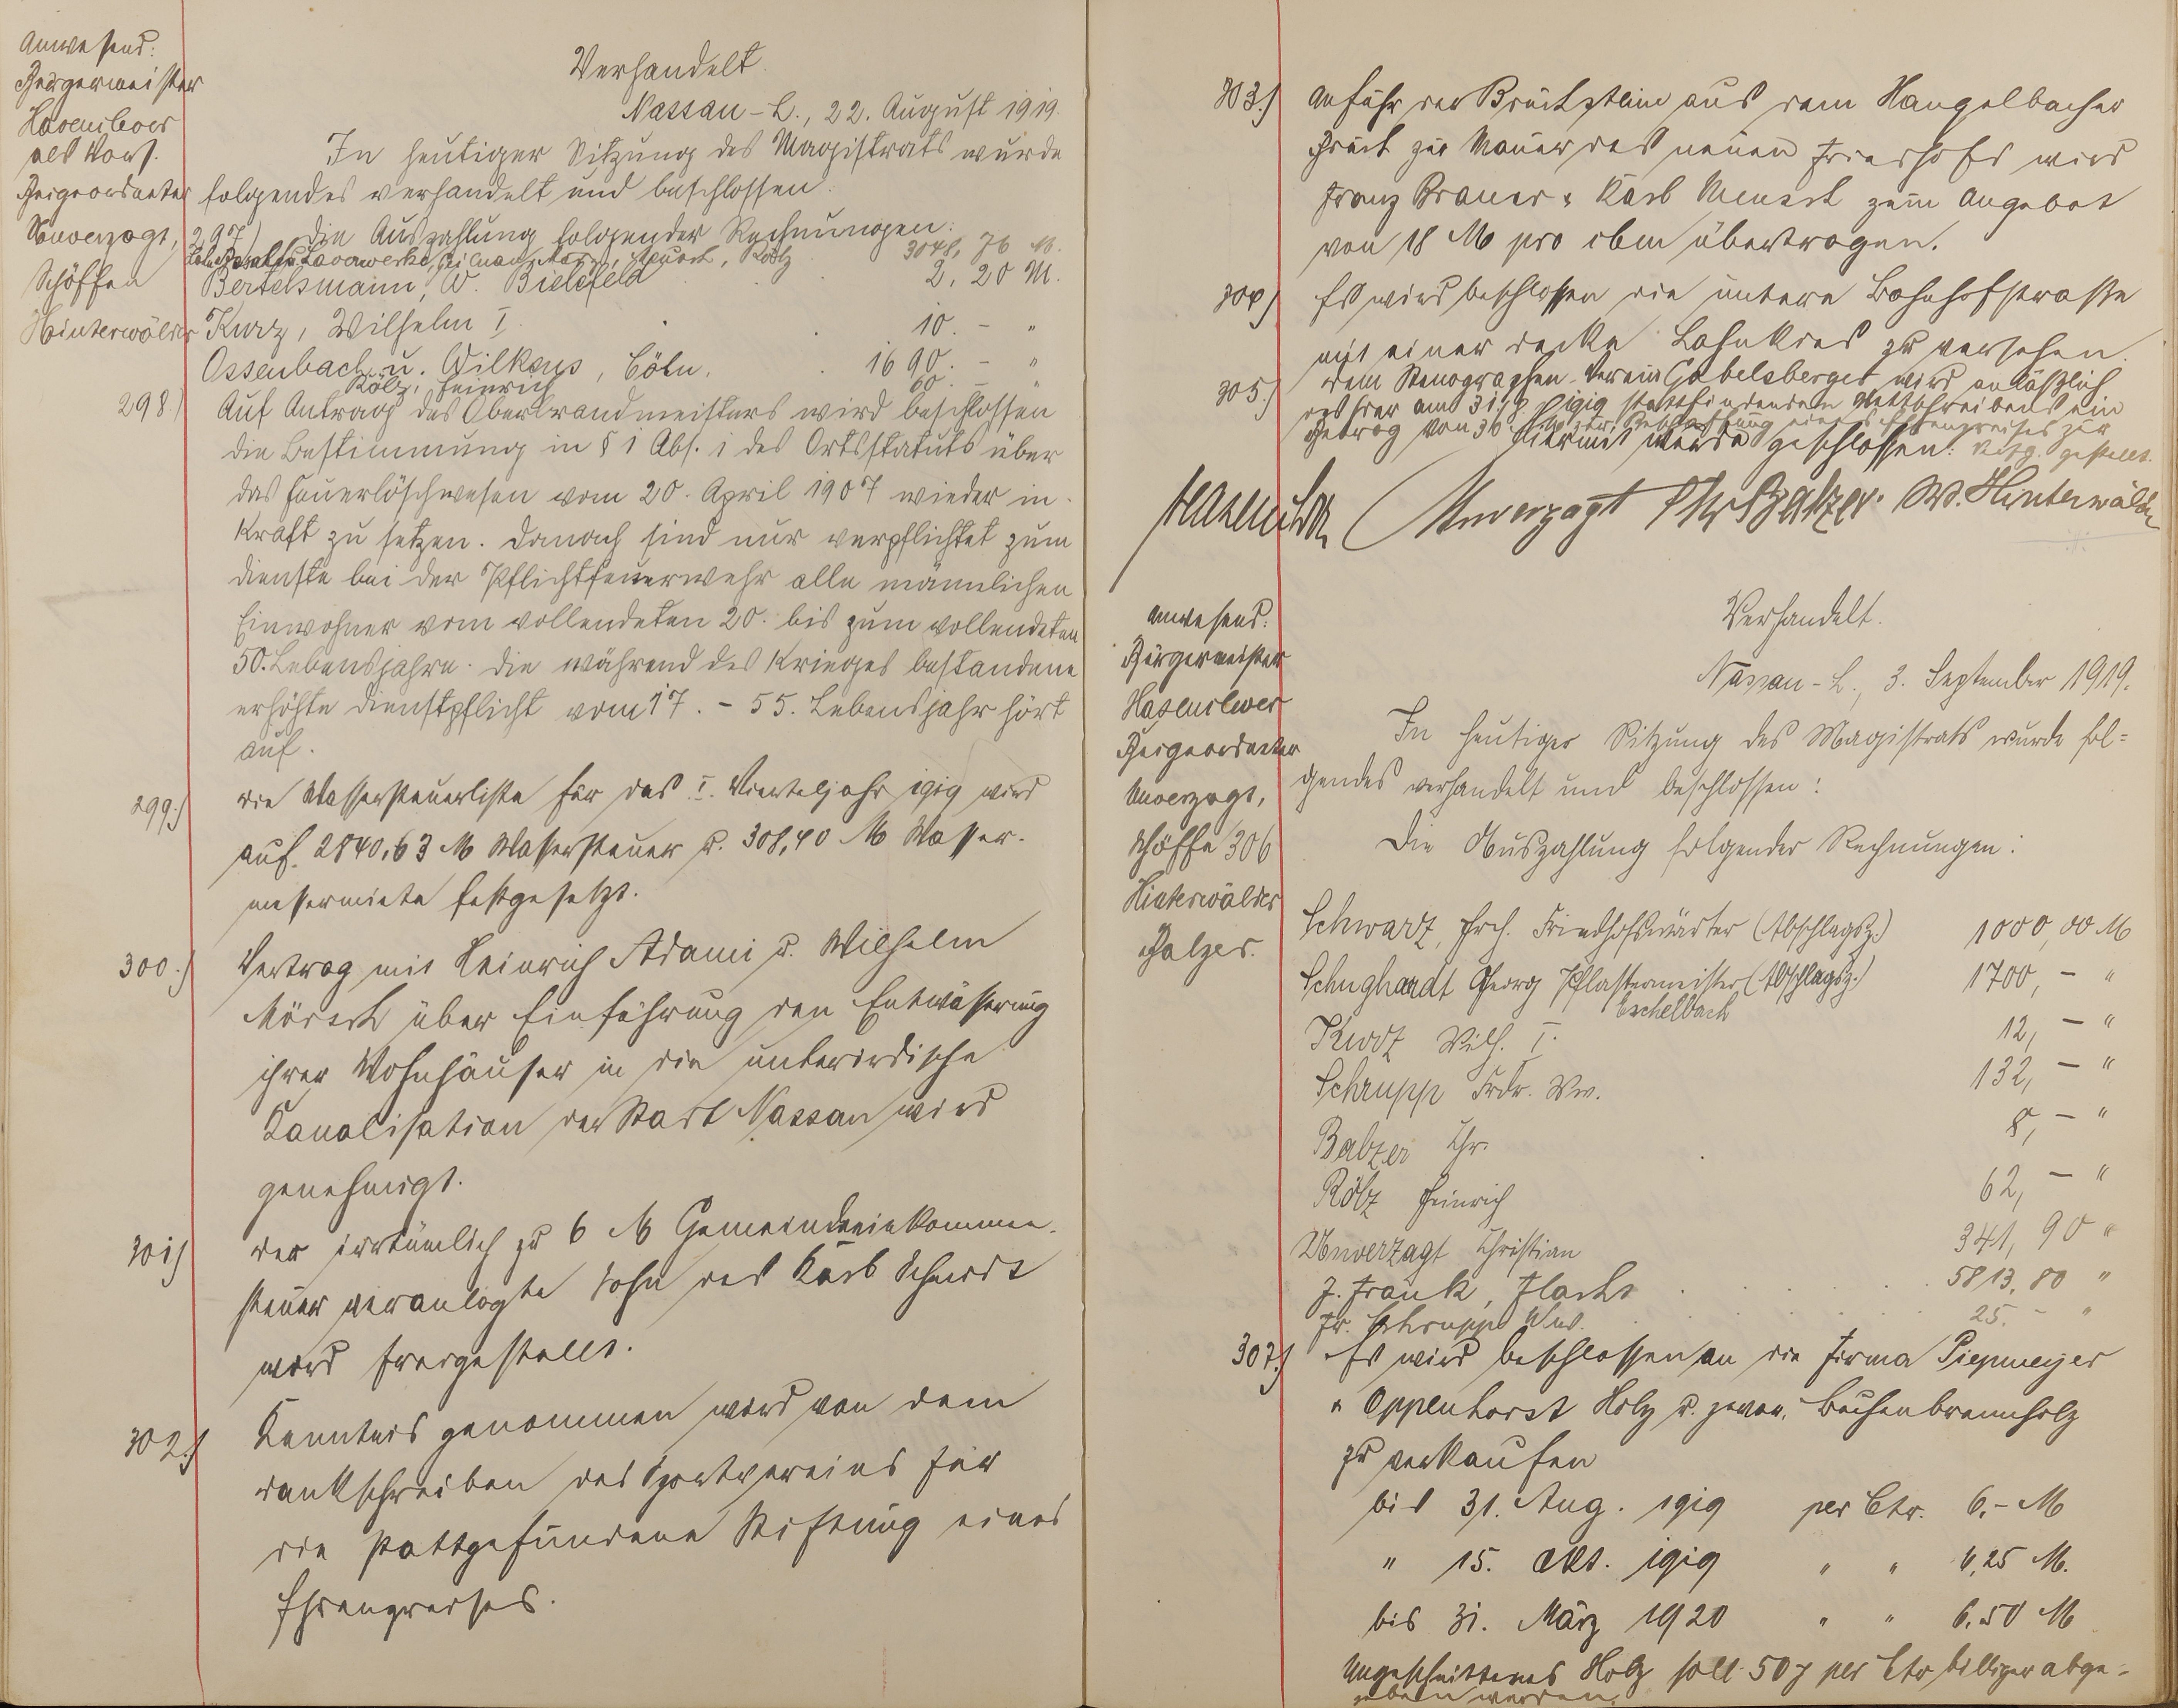 Anwesend:
Bürgermeister
Hasenclever
als Vors.
Beigeordneter
Unverzagt,
Schöffen
Hinterwälder
Verhandelt.
Nassau-L., 22. August 1919.
In heutiger Sitzung des Magistrats wurde
folgendes verhandelt und beschlossen:
297) Die Auszahlung folgender Rechnungen:
3048,76 M.
Bertelsmann, W. Bielefeld 2,20 M.
Kurz, Wilhelm I. 10.- "
Ossenbach u. Wilkens, Cöln. 1690.- "
Kölz, Heinrich 60.- "
298.) Auf Antrag des Oberbrandmeisters wird beschlossen
die Bestimmung in § 1 Abs. 1 des Ortsstatuts über
das Feuerlöschwesen vom 20. April 1907 wieder in
Kraft zu setzen. Danach sind nur verpflichtet zum
Dienste bei der Pflichtfeuerwehr alle männlichen
Einwohner vom vollendeten 20. bis zum vollendeten
50. Lebensjahre. Die während des Krieges bestandene
erhöhte Dienstpflicht vom 17. - 55. Lebensjahr hört
auf.
299.) Die Wassersteuerliste für das I. Vierteljahr 1919 wird
auf 2840,63 M Wassersteuer u. 308,40 M Wasser-
messermiete festgesetzt.
300.) Vertrag mit Heinrich Adami u. Wilhelm
über Einführung der Entwässerung
ihrer Wohnhäuser in die unterirdische
Kanalisation der Stadt Nassau wird
genehmigt.
301) Der irrtümlich zu 6 M Gemeindeeinkommen-
steuer veranlagte Sohn des Karl Schmidt
wird freigestellt.
302.) Kenntnis genommen wird von dem
Dankschreiben des Sportvereins für
die stattgefundene Stiftung eines
Ehrenpreises.
303.) Anfuhr der Bruchsteine aus dem Hangelbacher
Bruch zur Mauer des neuen Friedhofs wird
Franz Brauer & Karl zum Angebot
von 18 M pro cbm übertragen.
304) Es wird beschlossen die untere Bahnhofstrasse
mit einer Decke Lahnkies zu versehen.
305.) Dem Stenographen-Verein Gabelsberger wird anläßlich
des hier am 31/8 1919 stattfindenden Wettschreibens ein
Betrag von 30 M zur Beschaffung eines Ehrenpreises zur
Vfg. gestellt.
Hiermit wurde geschlossen.
Hasenclever Unverzagt Chr Balzer. W. Hinterwälder
Anwesend:
Bürgermeister
Hasenclever
Beigeordneter
Unverzagt,
Schöffe
Hinterwälder
Balzer.
Verhandelt.
Nassau-L., 3. September 1919.
In heutiger Sitzung des Magistrats wurde fol=
gendes verhandelt und beschlossen:
306 Die Auszahlung folgender Rechnungen:
Schwarz, Frch. Friedhofswärter (Abschlagsz.) 1000,00 M
Schughardt Georg Pflastermeister (Abschlagsz.) 1700,- "
Eschelbach
Kurz Wilh. I. 12,- "
Schrupp Frdr. Ww. 132,- "
Balzer Chr. 8,- "
Kölz Heinrich 62,- "
Unverzagt Christian 341,90 "
J. Frank, Flacht 5813,80 "
Fr. Schrupp Wwe. 25.- "
307.) Es wird beschlossen an die Firma Piepmeyer
& Oppenhorst Holz u. zwar. Buchenbrennholz
zu verkaufen
bis 31. Aug. 1919 per Ctr. 6.- M
" 15. Okt. 1919 " " 6,25 M.
bis 31. März 1920 " " 6.50 M
Ungeschnittenes Holz soll 50 ₰ per Ctr billiger abge-
geben werden.